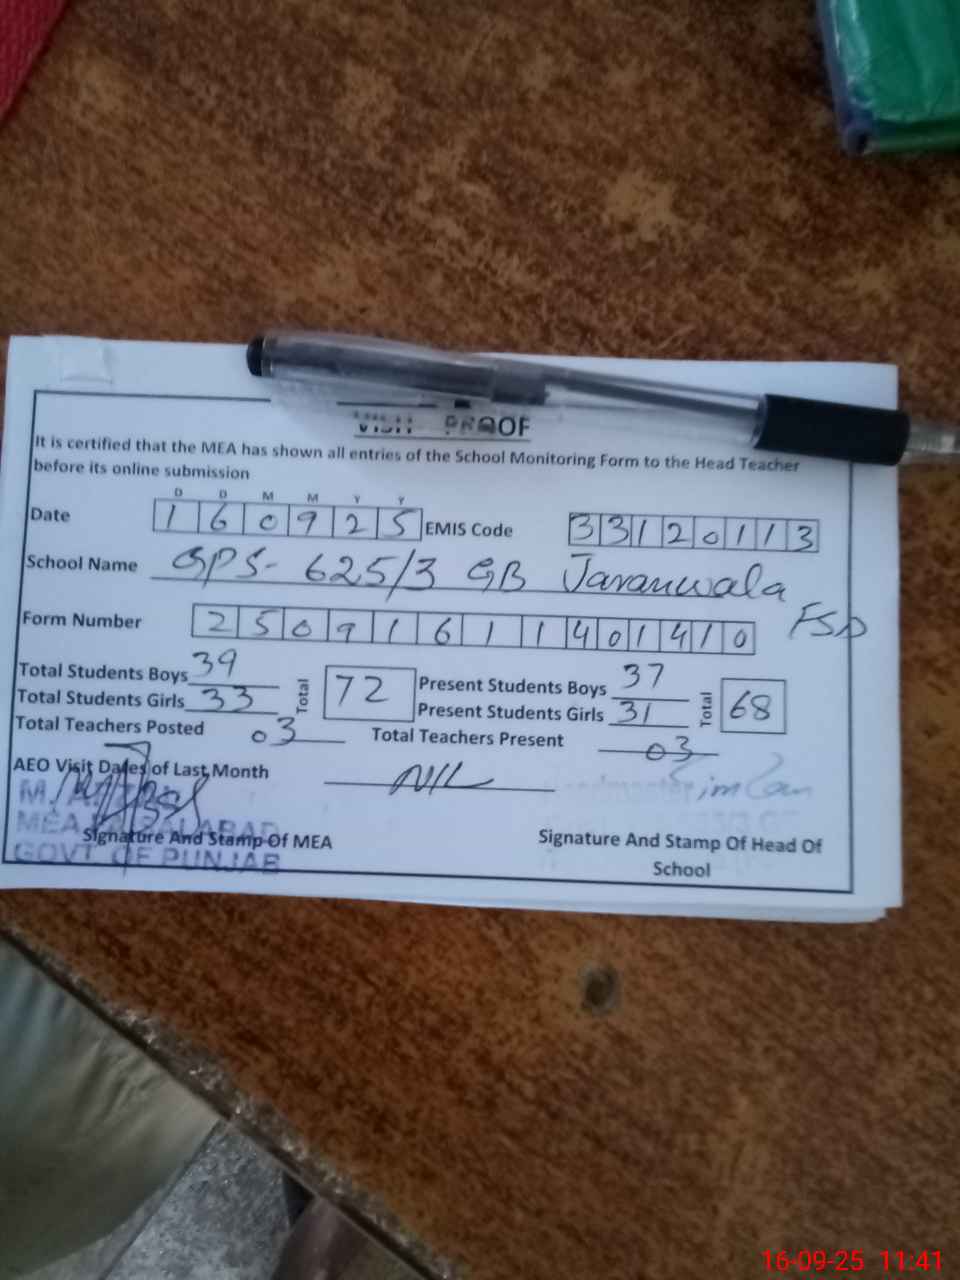 VISIT PROOF
It is certified that the MEA has shown all entries of the School Monitoring Form to the Head Teacher
before its online submission
D D M M Y Y
Date 1 6 0 9 2 5 EMIS Code 3 3 1 2 0 1 1 3
School Name GPS- 625/3 GB Jaranwala
FSD
Form Number 2 5 0 9 1 6 1 1 4 0 1 4 1 0
Total Students Boys 39 Total 72 Present Students Boys 37 Total 68
Total Students Girls 33 Present Students Girls 31
Total Teachers Posted 03 Total Teachers Present 03
AEO Visit Dates of Last Month NIL
MEA FAISALABAD
Signature And Stamp Of MEA Signature And Stamp Of Head Of
School
GOVT OF PUNJAB
16-09-25 11:41